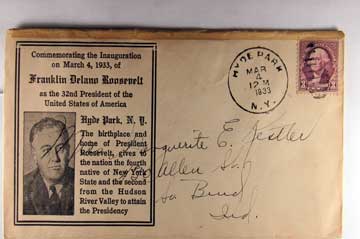 Commemorating the Inauguration
on March 4, 1933, of
Franklin Delano Roosevelt
as the 32nd President of the
United States of America
Hyde Park, N. Y.
The birthplace and
home of President
Roosevelt, gives to
the nation the fourth
native of New York
State and the second
from the Hudson
River Valley to attain
the Presidency
HYDE PARK
MAR
4
12 M
1933
N.Y.
E.
Allen St.
Bend
Ind.